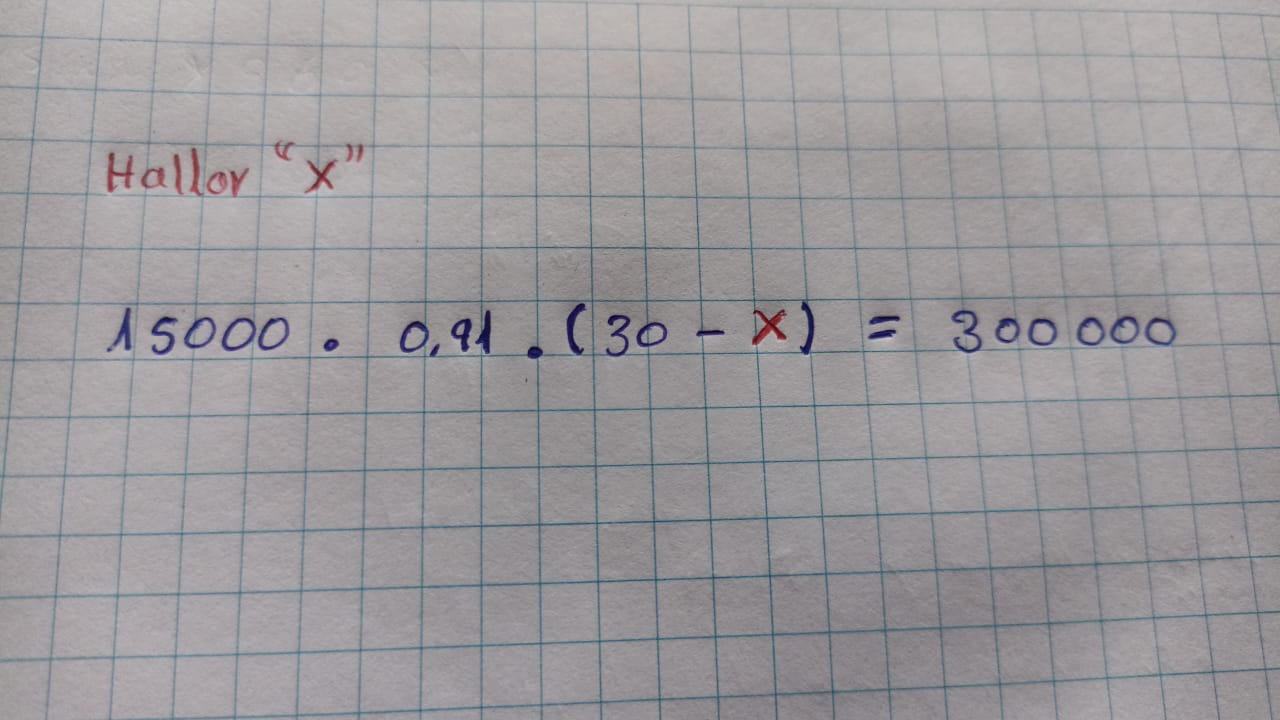 Hallar "x"
15000 . 0,91 . (30 - x) = 300 000